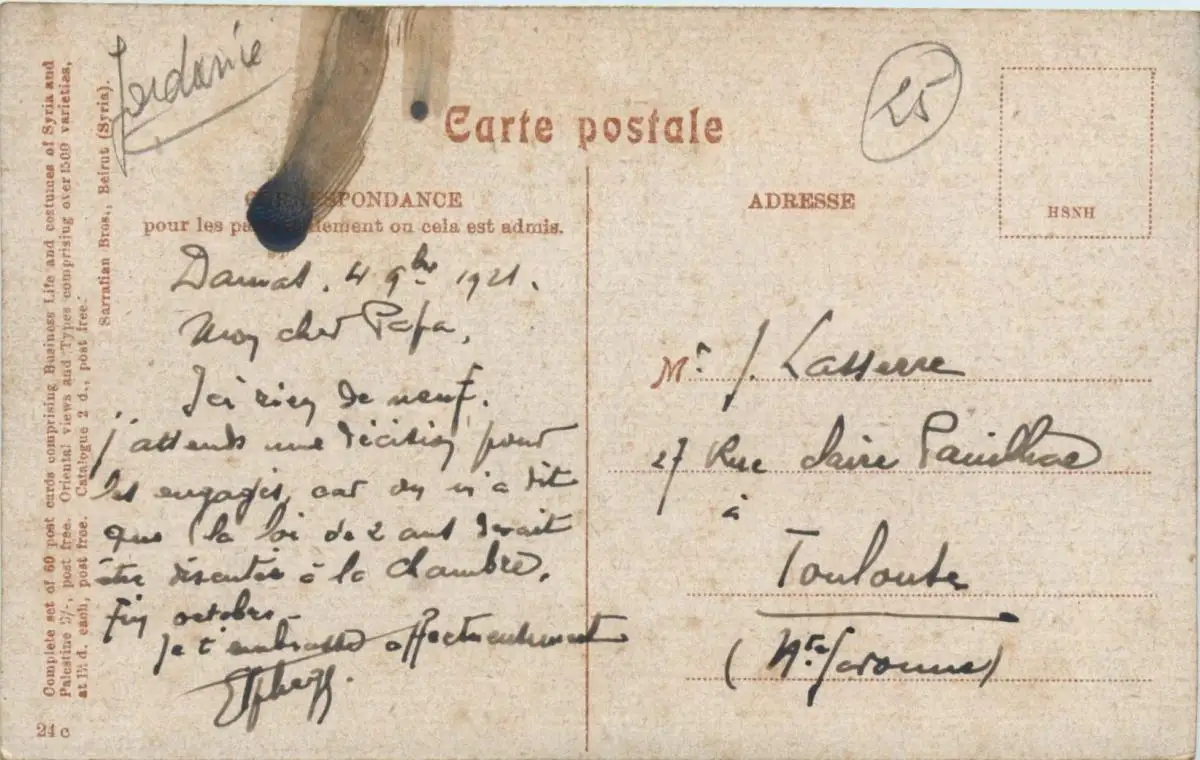 Jordanie
25
Carte postale
CORRESPONDANCE
pour les pa ement ou cela est admis.
ADRESSE
HSNH
Damas. 4 9bre 1921.
Mon cher Papa,
Ici rien de neuf.
j'attends une décision pour
les engagés, car on m'a dit
que la loi de 2 ans devait
être discutée à la chambre,
fin octobre
Je t'embrasse affectueusement
Mr. J. Lasserre
27 Rue claire Pauilhac
à
Toulouse
(Hte Garonne)
Complete set of 60 post cards comprising Business Life and costumes of Syria and
Palestine 5/-, post free. Oriental views and Types comprising over 1500 varieties,
at 1½ d. each, post free. Catalogue 2 d., post free.
Sarrafian Bros., Beirut (Syria).
24 c